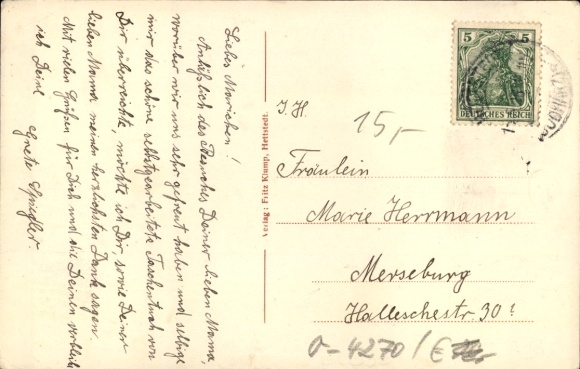 Liebes Mariechen!
Anläßlich des Besuches Deiner lieben Mama,
worüber wir uns sehr gefreut haben und selbige
mir das schöne selbstgearbeitete Taschentuch von
Dir überreichte, möchte ich Dir, sowie Deiner
lieben Mama meinen herzlichsten Dank sagen.
Mit vielen Grüßen für Dich und die Deinen verbleibe
ich Deine
Grete
Verlag: Fritz Klump, Hettstedt.
5 5
DEUTSCHES REICH
J. H.
15,-
Fräulein
Marie Herrmann
Merseburg
Halleschestr. 30
0-4270/